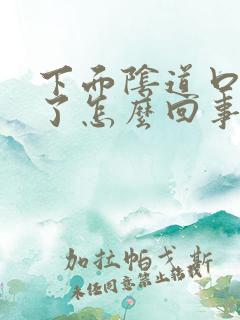 下而陰道口
了怎麼回事
加拉帕戈斯
未经同意禁止搭载